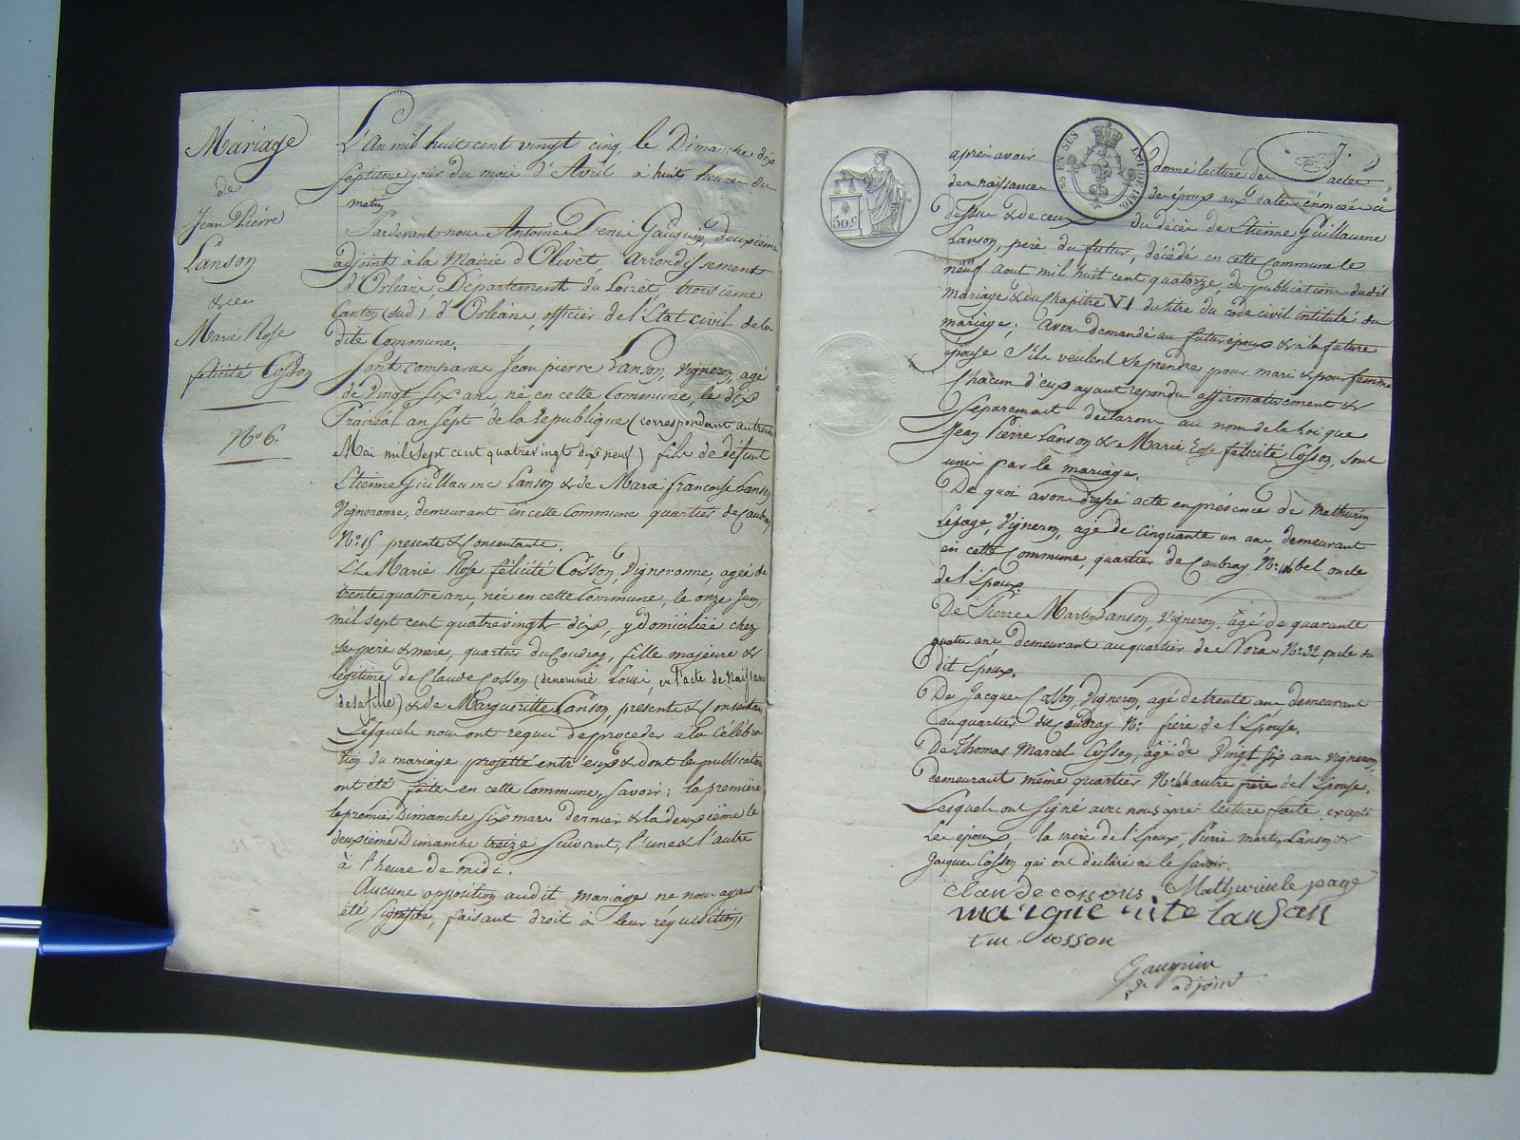 Mariage
de
Jean Pierre
Lanson
& de
Marie Rose
félicité Cosson
N° 6.
L'An mil huit cent vingt cinq, le Dimanche dix
septième jour du mois d'Avril à huit heures du
matin
Pardevant nous Antoine Denis Gaugnin, deuxième
adjoint à la Mairie d'Olivet, arrondissement
d'Orléans Département du Loiret, troisième
Canton (sud) d'Orléans, officier de l'Etat civil de la
dite Commune.
Sont comparus Jean pierre Lanson, vigneron, agé
de vingt six ans né en cette Commune, le dix
Prairéal an sept de la République (correspondant au trente
Mai mil sept cent quatre vingt dix neuf) fils de défunt
Etienne Guillaume Lanson & de Marie françoise Lanson
Vigneronne, demeurant en cette Commune quartier de Caubray
N° 15 presente & Consentante.
Et Marie Rose félicité Cosson, Vigneronne, agée de
trente quatre ans, née en cette Commune, le onze Juin
mil sept cent quatre vingt dix, y domiciliée chez
ses père & mère, quartier du Coudray, fille majeure &
légitime de Claude Cosson (denommé Louis, en l'acte de Naissance
de sa fille) & de Marguerite Lanson, presents & Consentans
Lesquels nous ont requis de proceder à la Célébra
tion du mariage projetté entr'eux & dont les publications
ont été faites en cette Commune, Savoir; la première
le premier Dimanche six mars dernier & la deuxième le
deuxième Dimanche treize suivant, l'une & l'autre
à l'heure de midi.
Aucune opposition audit mariage ne nous ayant
été signifiée, faisant droit à leur réquisition,
EN SUS
50 c.
après avoir donné lecture des actes
de naissance des époux aux dates énoncées ci
dessus & de ceux du décès de Etienne Guillaume
Lanson, père du futur, décédé en cette Commune le
neuf aout mil huit cent quatorze, de publications dudit
mariage & du Chapitre VI du titre du code civil intitulé du
mariage; Avons demandé au futur époux & à la future
épouse S'ils veulent se prendre pour mari & pour femme
Chacun d'eux ayant répondu affirmativement &
Séparement déclarons au nom de la Loi que
Jean Pierre Lanson & Marie Rose félicité Cosson, sont
unis par le mariage.
De quoi avons dressé acte en présence de Mathurin
Lepage, Vigneron, agé de Cinquante un ans, demeurant
en cette Commune, quartier de Caubray, N° bel oncle
de l'Epoux
De Pierre Martin Lanson, vigneron, agé de quarante
quatre ans demeurant au quartier de N° 32 oncle du
dit Epoux.
De Jacques Cosson, vigneron, agé de trente ans demeurant
au quartier de Caubray N° frère de l'Epouse.
De Thomas Marcel Cosson, agé de vingt six ans vigneron,
demeurant même quartier N° autre frère de l'Epouse.
Lesquels ont signé avec nous après lecture faite, excepté
Les époux, la mère de l'Epoux, Pierre martin Lanson &
Jacques Cosson qui ont déclaré ne le savoir.
Claude cosson Mathurin le page
marguerite lanson
t m cosson
Gaugnin
adjoint